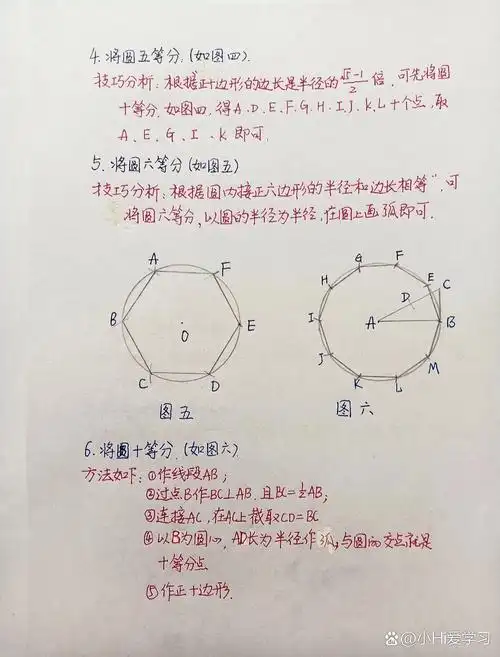 4.将圆五等分.(如图四).
技巧分析:根据正十边形的边长是半径的(√5-1)/2倍,可先将圆
十等分.如图四,得A、D、E、F、G、H、I、J、K、L十个点,取
A、E、G、I、K即可.
5.将圆六等分(如图五)
技巧分析:根据圆内接正六边形的半径和边长相等",可
将圆六等分,以圆的半径为半径,在圆上画弧即可.
A
F
B
E
O
C
D
图五
G
F
H
E
C
D
I
A
B
J
M
K
L
图六
6.将圆十等分(如图六)
方法如下:①作线段AB;
②过点B作BC⊥AB.且BC=½AB;
③连接AC,在AC上截取CD=BC
④以B为圆心,AD长为半径作弧,与圆的交点就是
十等分点
⑤作正十边形.
@小Hi爱学习